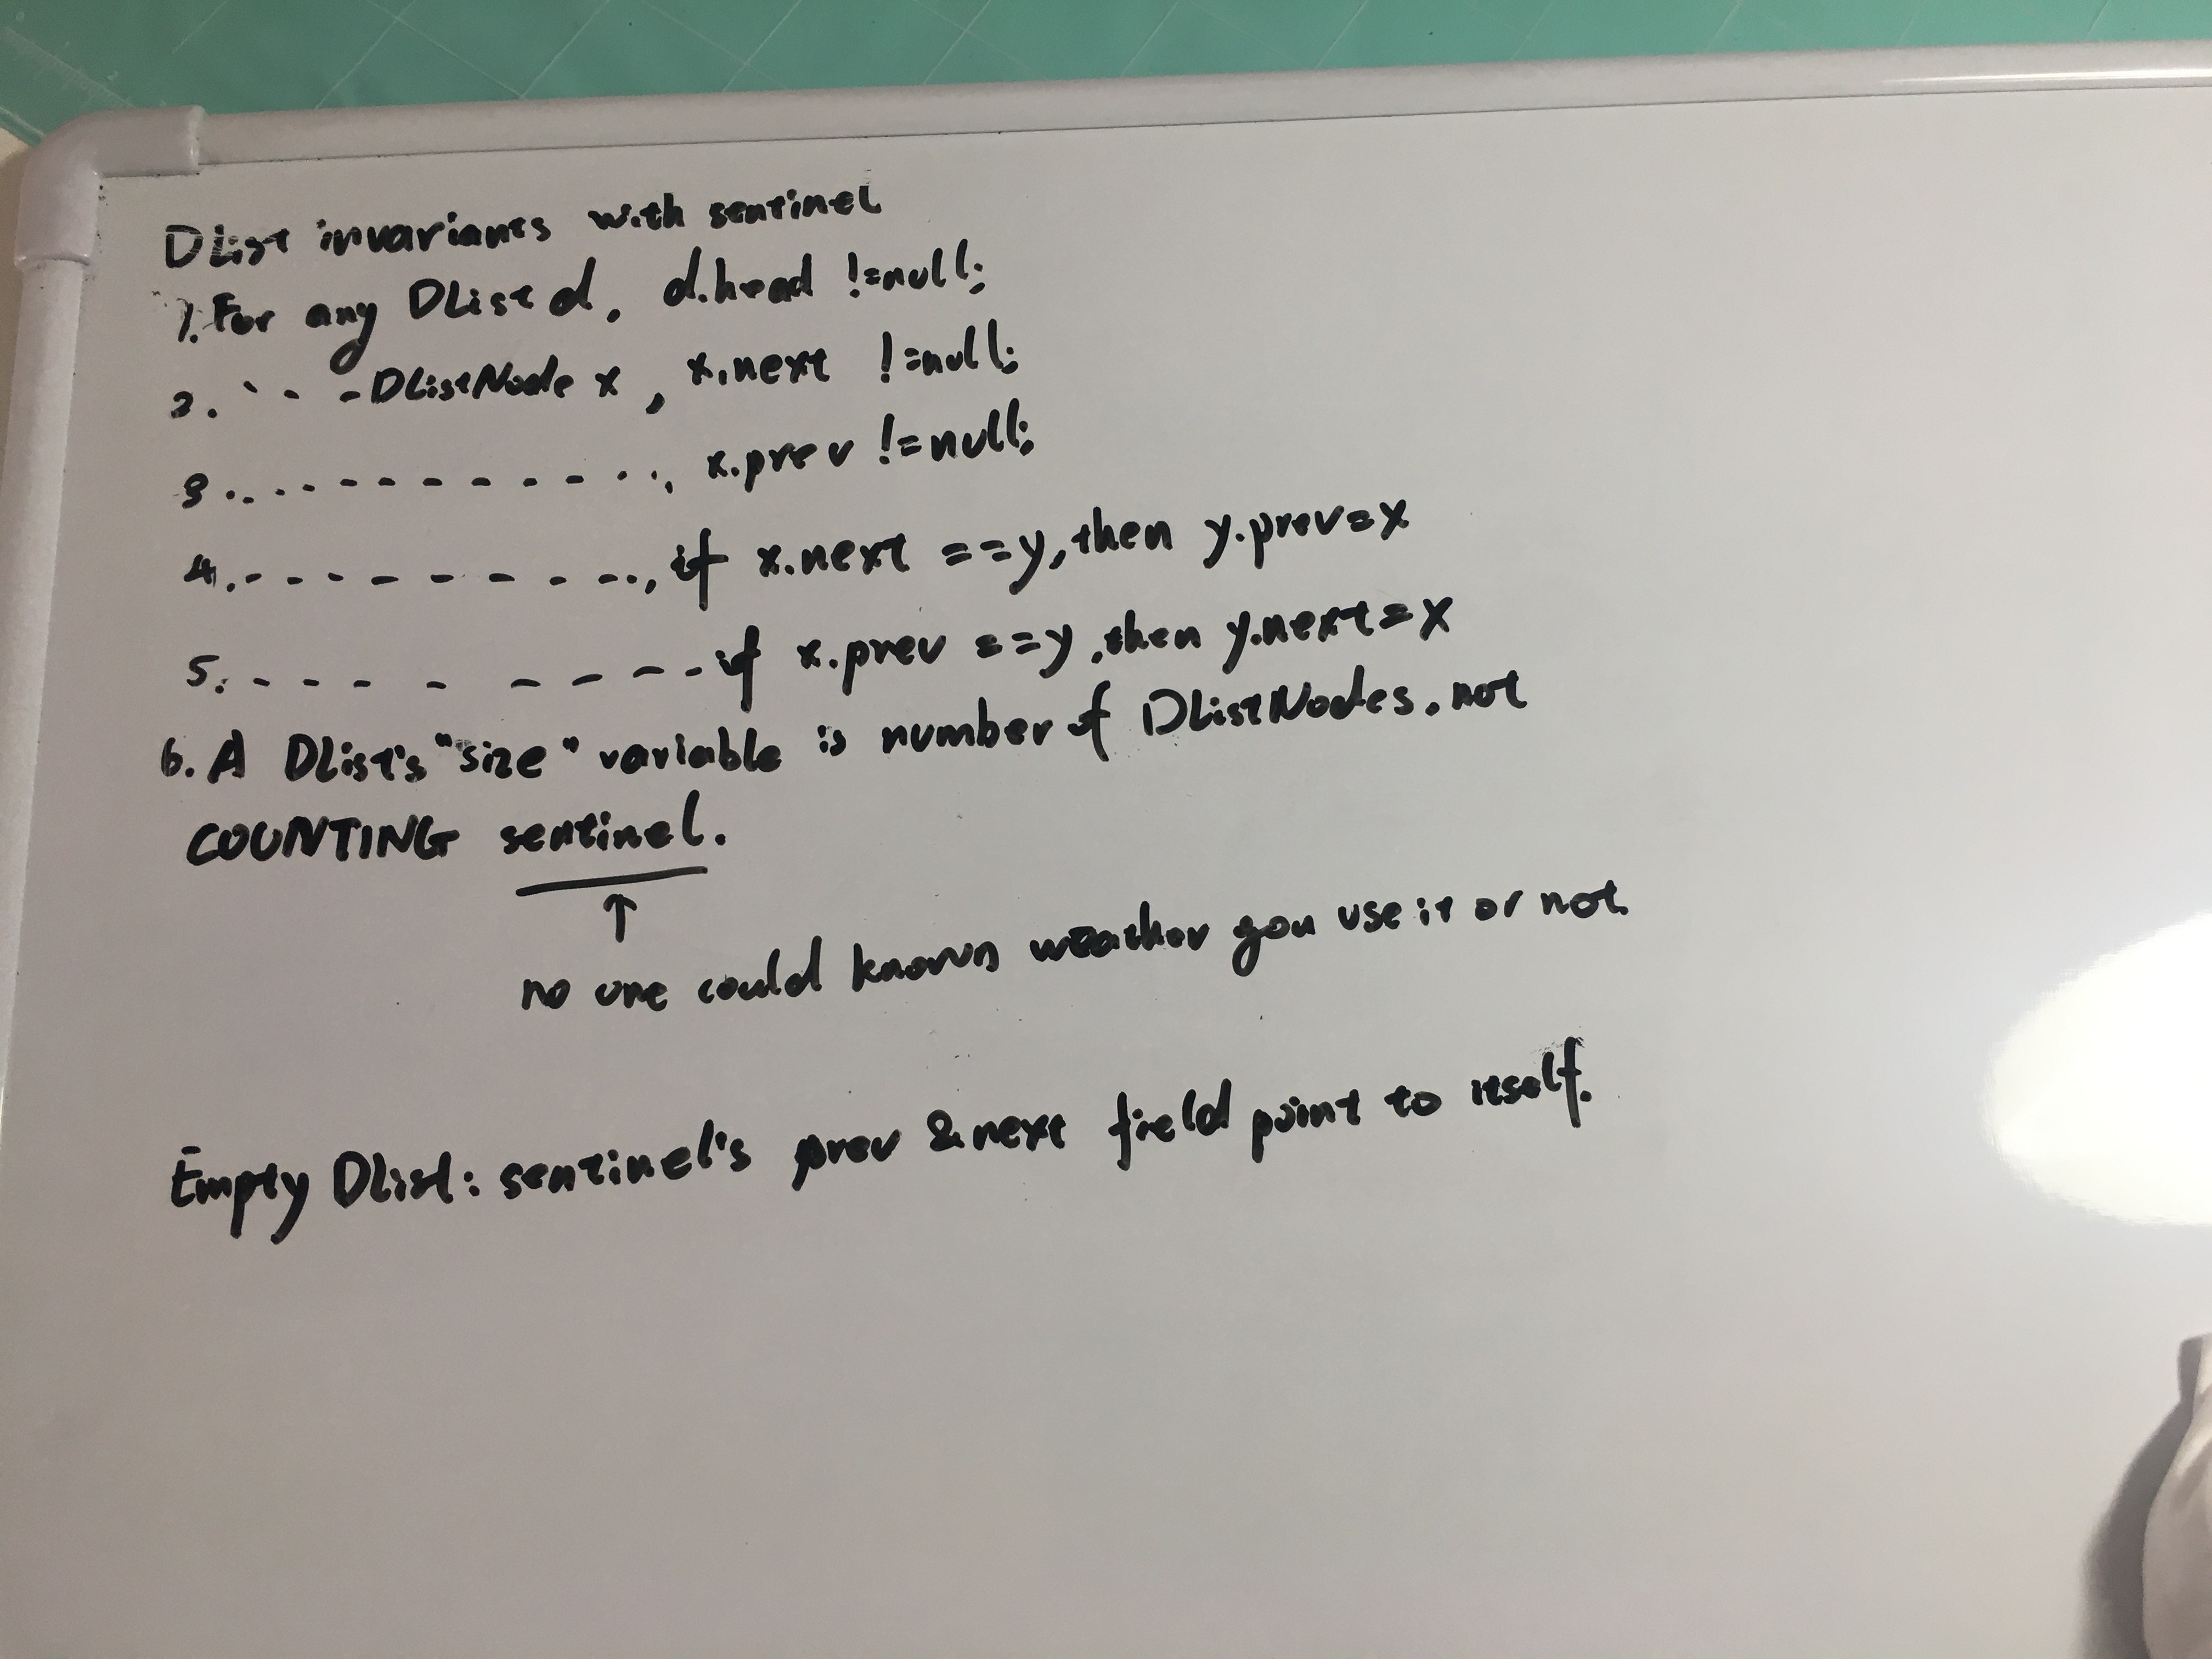 DList invariants with sentinel
1. For any DList d, d.head !=null;
2. ` - - - DListNode x, x.next !=null;
3. . . - - - - - - - - - . . , x.prev !=null;
4. - - - - - - - - - . . , if x.next ==y, then y.prev=x
5. - - - - - - - - - if x.prev ==y, then y.next=x
6. A DList's "size" variable is number of DListNodes. not
COUNTING sentinel.
↑
no one could known weather you use it or not.
Empty DList: sentinel's prev & next field point to itself.